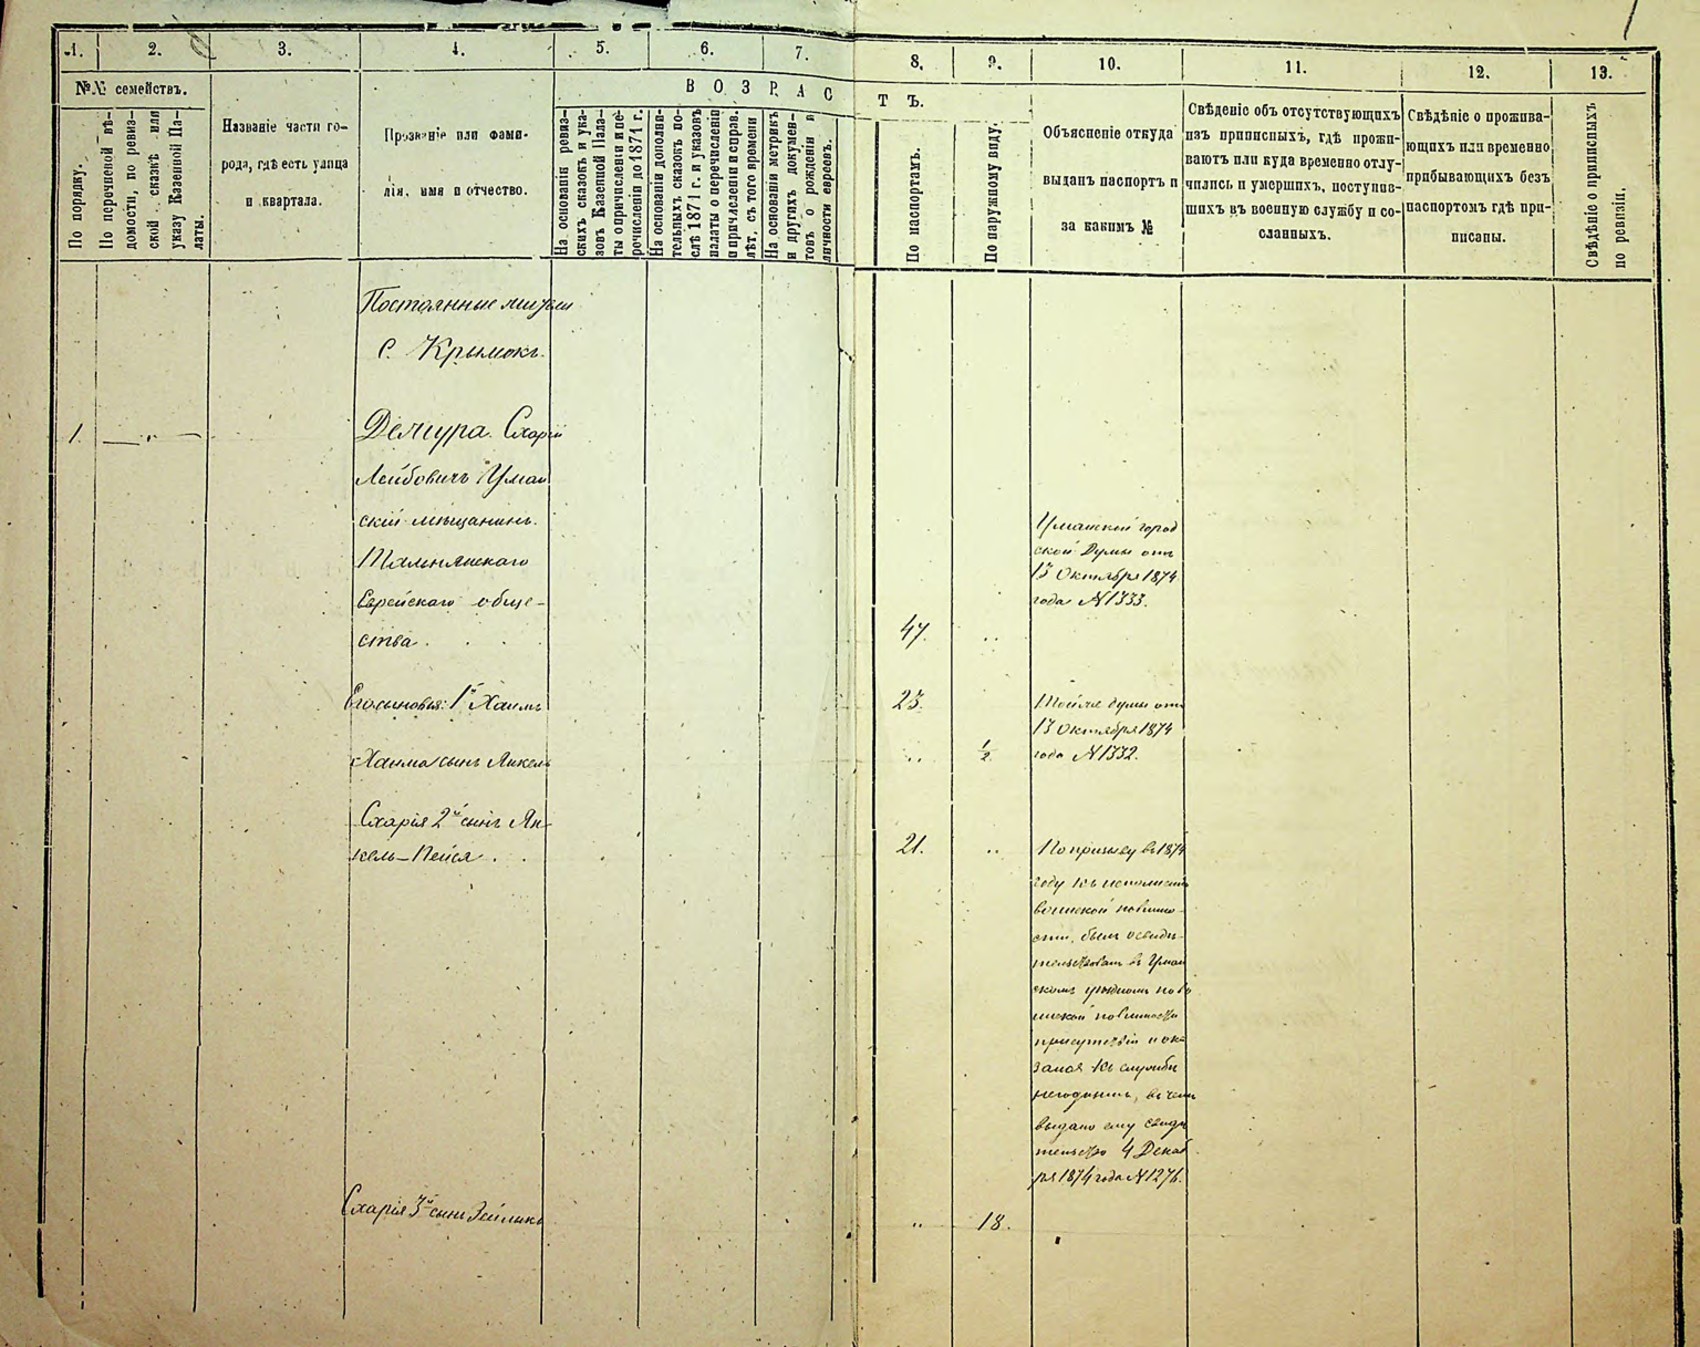 1.
2.
3.
4.
5.
6.
7.
8.
9.
10.
11.
12.
13.
№№ семействъ.
По порядку.
По перечневой вѣ-
домости, по ревиз-
ской сказкѣ или
указу Казенной Па-
латы.
Названіе части го-
рода, гдѣ есть улица
и квартала.
Прозваніе или фами-
лія, имя и отчество.
ВОЗРАСТЪ.
На основаніи ревиз-
скихъ сказокъ и ука-
зовъ Казенной Пала-
ты о причисленіи и пе-
речисленіи до 1871 г.
На основаніи дополни-
тельныхъ сказокъ по-
слѣ 1871 г. и указовъ
палаты о перечисленіи
и причисленіи и справ.
лѣт, съ того времени
На основаніи метрикъ
и другихъ докумен-
товъ о рожденіи и
личности евреевъ.
По паспортамъ.
По наружному виду.
Объясненіе откуда
выданъ паспортъ и
за какимъ №
Свѣденіе объ отсутствующихъ
изъ приписныхъ, гдѣ прожи-
ваютъ или куда временно отлу-
чились и умершихъ, поступив-
шихъ въ военную службу и со-
сланныхъ.
Свѣдѣніе о прожива-
ющихъ или временно
прибывающихъ безъ
паспортомъ гдѣ при-
писаны.
Свѣдѣніе о приписныхъ
по ревизіи.
Постоянные жители
с. Крымокъ.
1. — „ —
Демура Схарій
Лейбовичъ Уман
скій мѣщанинъ
Тальнянскаго
Еврейскаго обще-
ства . . .
47. „
Уманской город
ской Думы отъ
13 Октября 1874
года №1333.
Его сыновья: 1й Хаимъ
23.
Тойже думы отъ
13 Октября 1874
года №1332.
Хаима сынъ Янкель
„ 1/2
Схарія 2й сынъ Ян-
кель-Пейся . .
21. „
По призыву въ 1874
году къ исполненію
воинской повинно-
сти, былъ освидѣ-
тельствованъ въ Уман
скомъ уѣздномъ по во
инской повинности
присутствіи и ока
зался къ службѣ
негоднымъ, въ чемъ
выдано ему свидѣ
тельство 4 Декаб
ря 1874 года №1276.
Схарія 3й сынъ Зейликъ
„ 18.